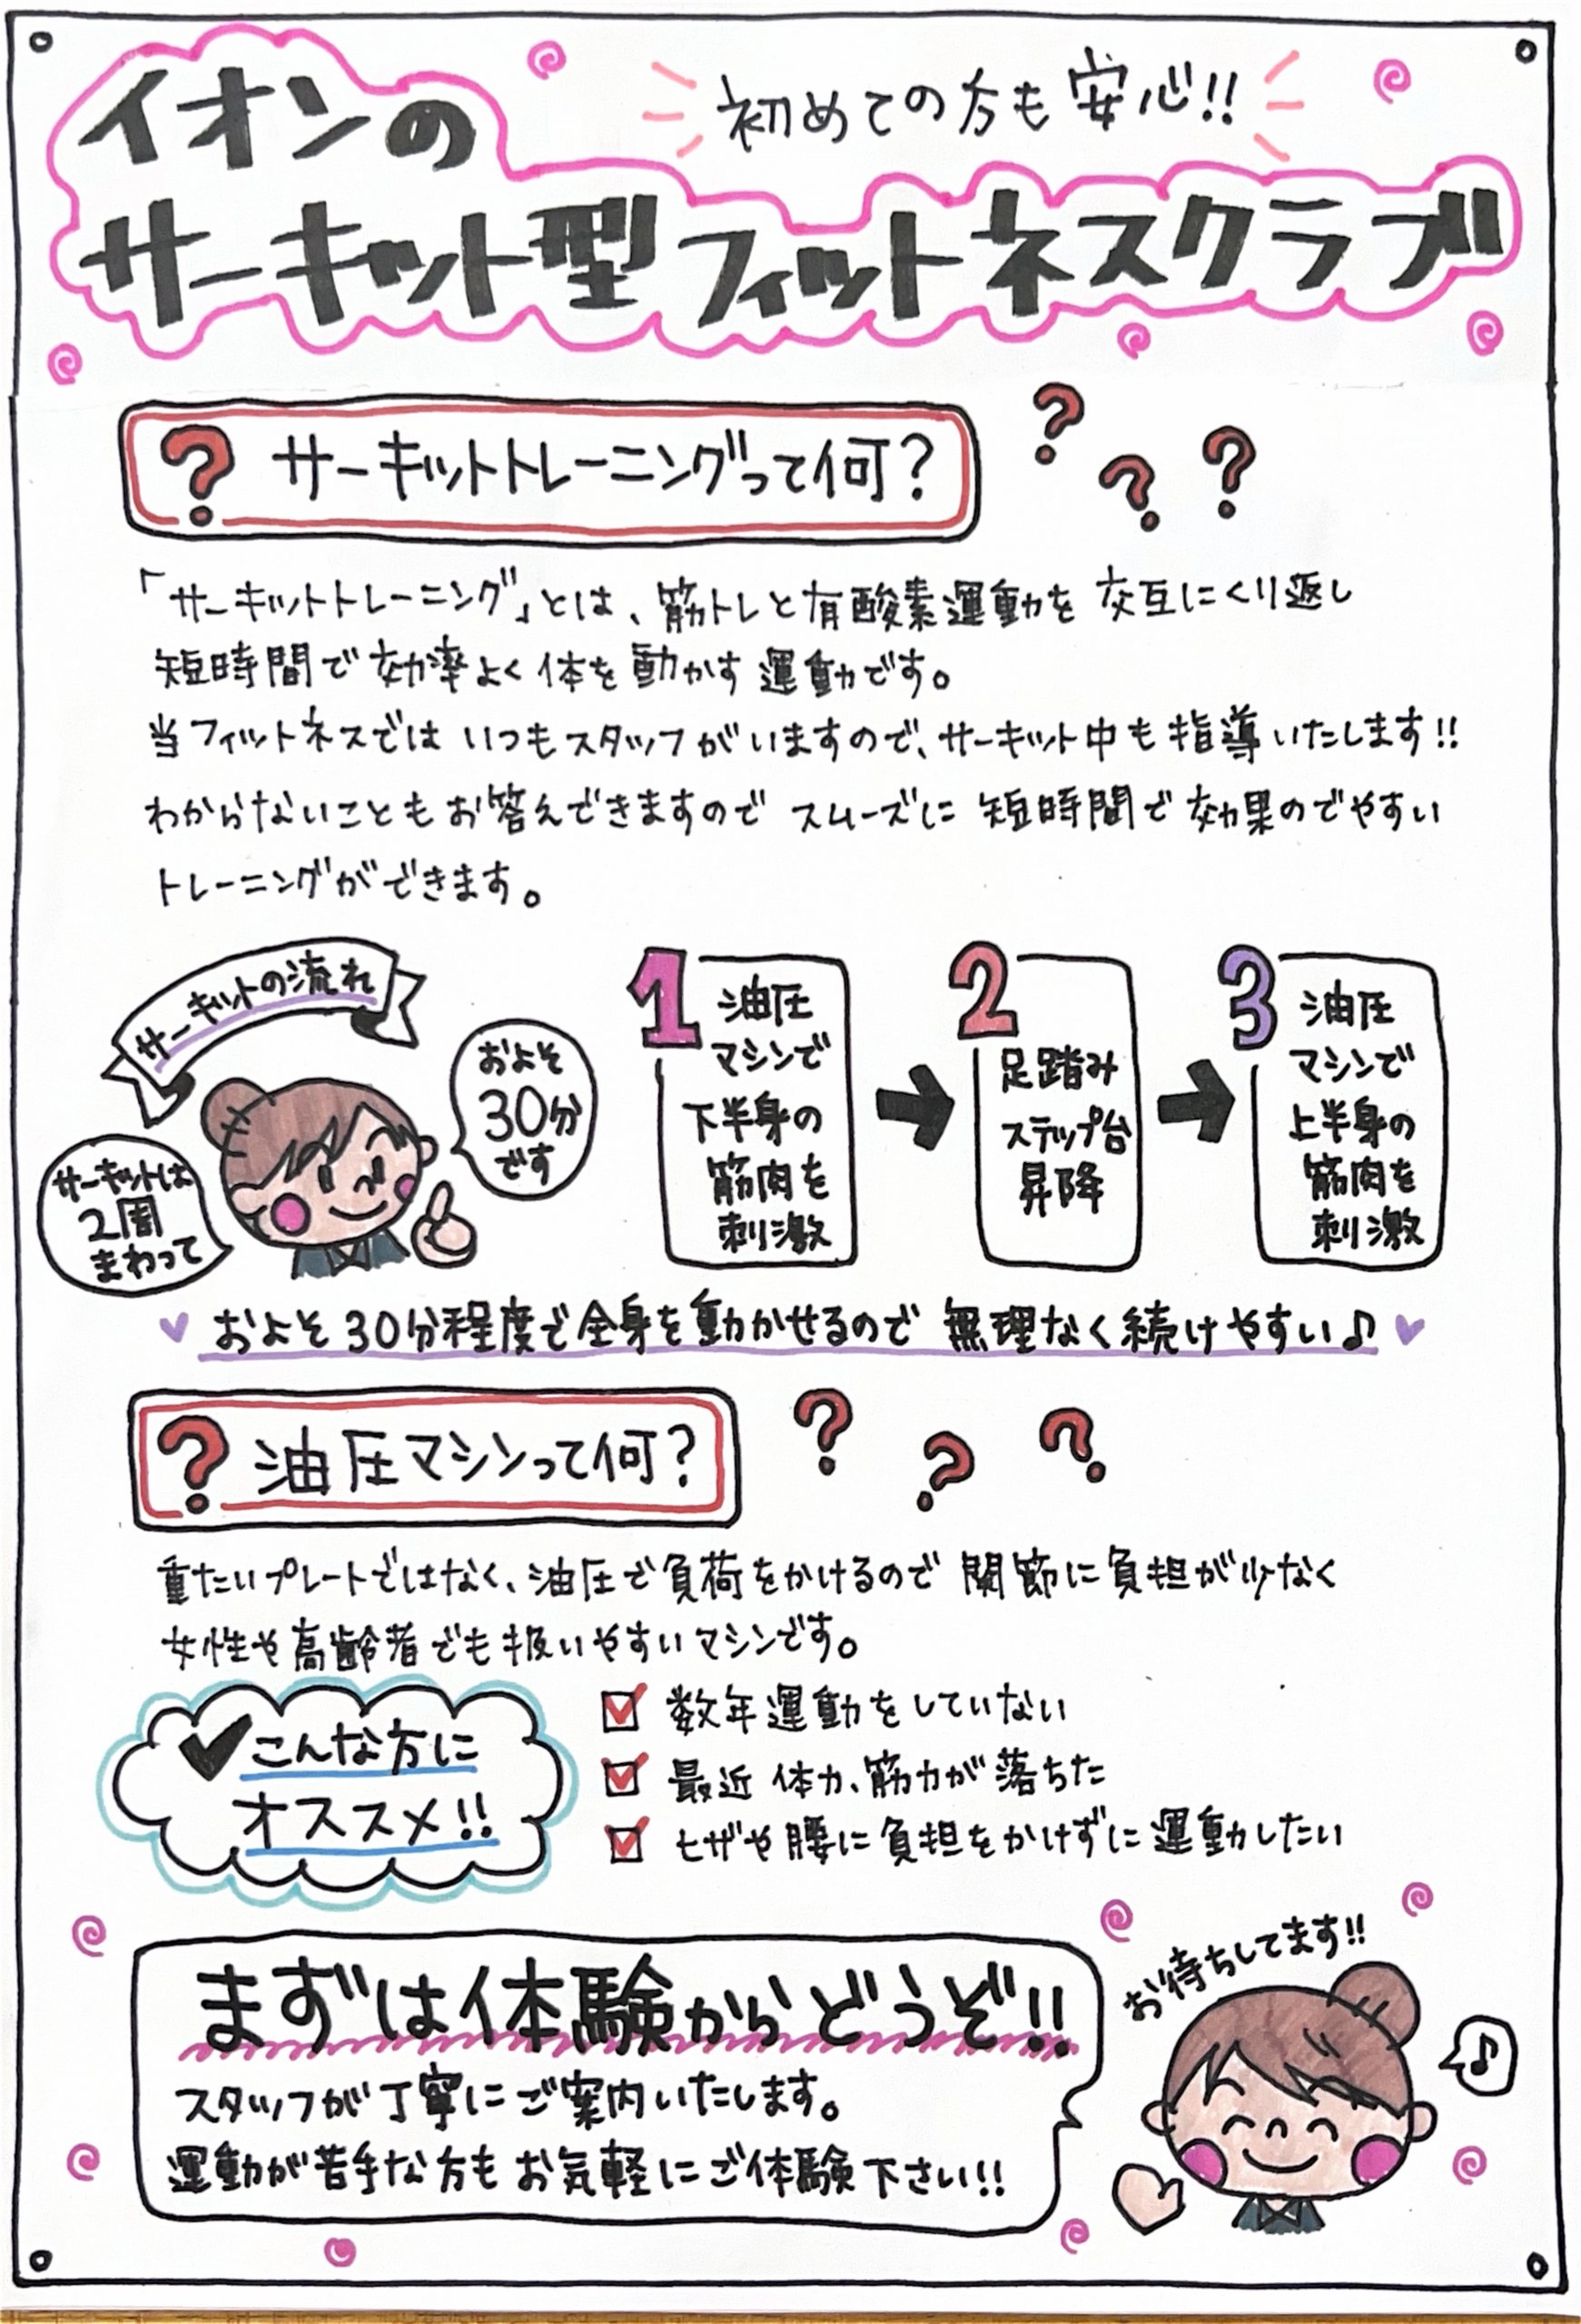 イオンの
初めての方も安心!!
サーキット型フィットネスクラブ
? サーキットトレーニングって何?
? ? ?
「サーキットトレーニング」とは、筋トレと有酸素運動を交互にくり返し
短時間で効率よく体を動かす運動です。
当フィットネスではいつもスタッフがいますので、サーキット中も指導いたします!!
わからないこともお答えできますのでスムーズに短時間で効果のでやすい
トレーニングができます。
サーキットの流れ
サーキットは
2周
まわって
およそ
30分
です
1 油圧
マシンで
下半身の
筋肉を
刺激
➡
2
足踏み
ステップ台
昇降
➡
3 油圧
マシンで
上半身の
筋肉を
刺激
およそ30分程度で全身を動かせるので無理なく続けやすい♪
? 油圧マシンって何?
? ? ?
重たいプレートではなく、油圧で負荷をかけるので関節に負担が少なく
女性や高齢者でも扱いやすいマシンです。
✓こんな方に
オススメ!!
☑ 数年運動をしていない
☑ 最近体力、筋力が落ちた
☑ ヒザや腰に負担をかけずに運動したい
まずは体験からどうぞ!!
スタッフが丁寧にご案内いたします。
運動が苦手な方もお気軽にご体験下さい!!
お待ちしてます!!
♪